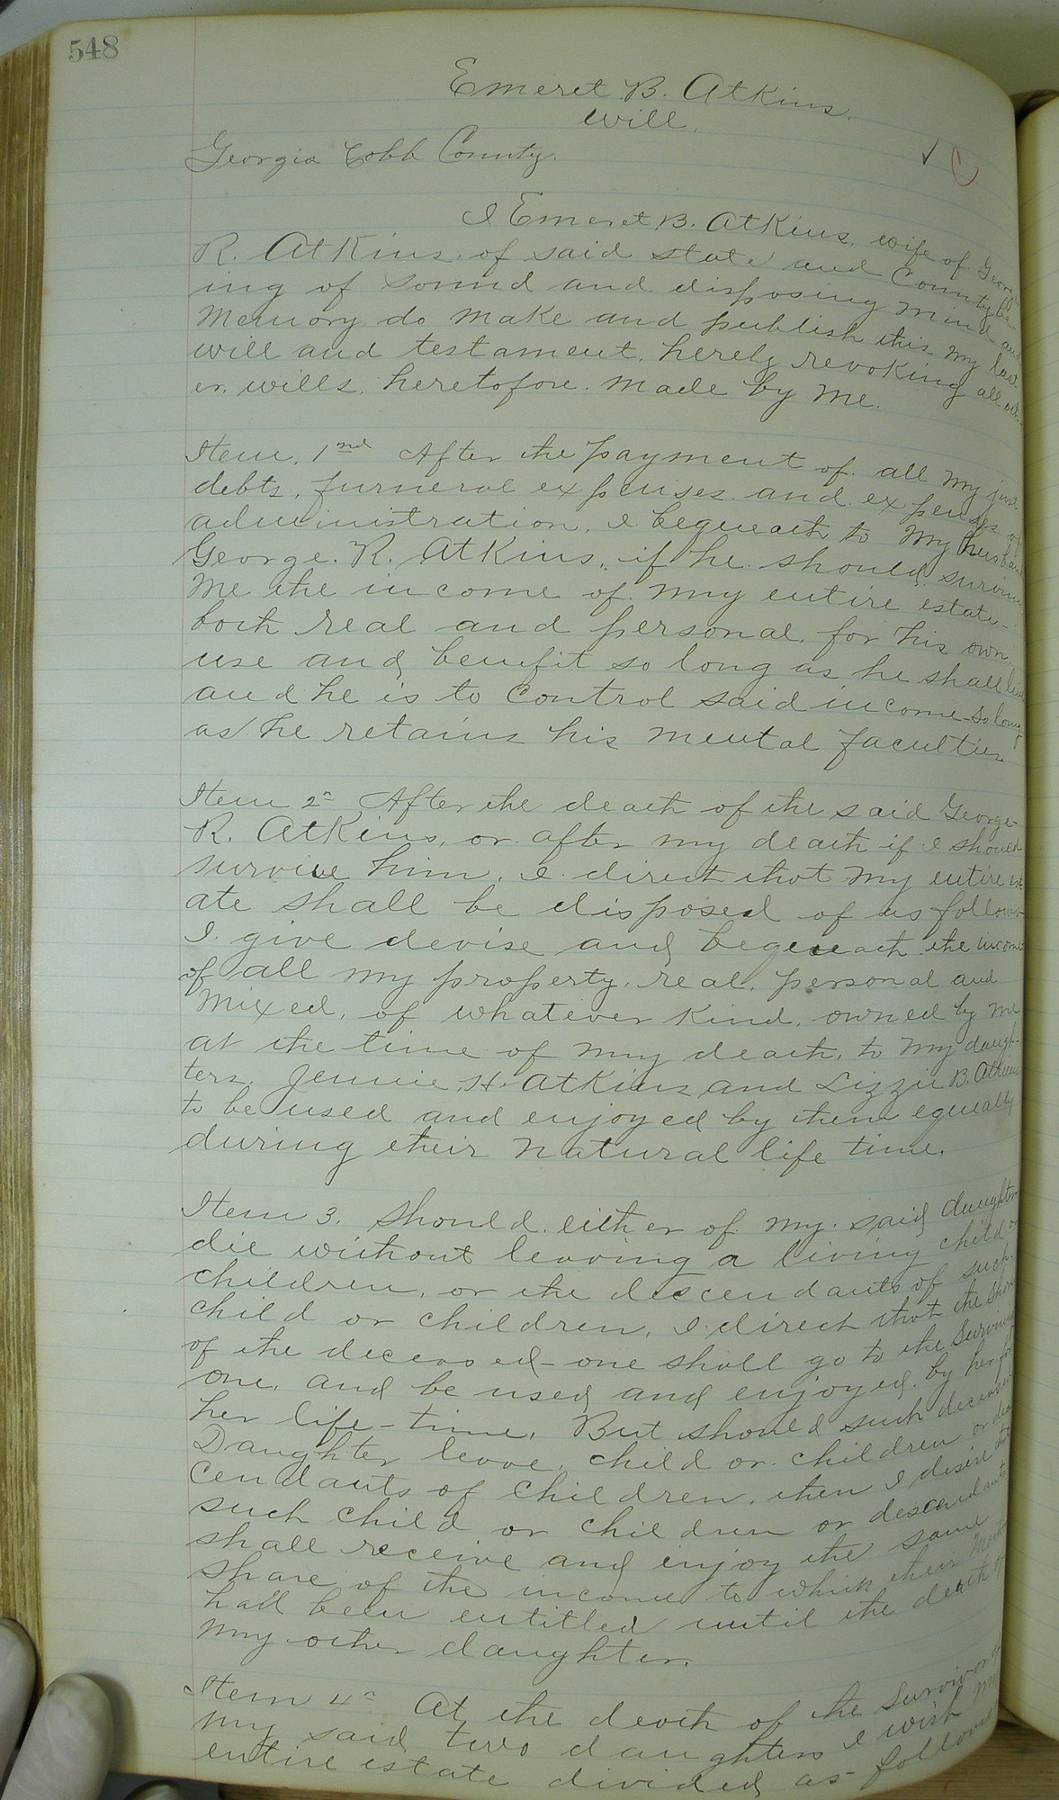 548
Emeret B. Atkins.
will.
Georgia Cobb County.
I Emeret B. Atkins, wife of George
R. Atkins of said state and County be
ing of sound and disposing mind and
Memory do make and publish this my last
will and testament, hereby revoking all oth
er wills, heretofore made by me.
Item. 1nd After the payment of all my just
debts, furneral expenses and expenses of
administration, I bequeath to my husband
George. R. Atkins, if he should survive
me the income of my entire estate
both real and personal for his own
use and benefit so long as he shall live
and he is to control said income so long
as he retains his mental faculties
Item 2d After the death of the said George
R. Atkins, or after my death if I should
survive him, I direct that my entire est
ate shall be disposed of as follows
I give devise and bequeath the income
of all my property, real, personal and
mixed, of whatever kind, owned by me
at the time of my death, to my daugh-
ters, Jennie H. Atkins and Lizzie B. Atkins
to be used and enjoyed by them equally
during their natural life time.
Item 3. Should either of my said daughters
die without leaving a living child or
children, or the descendants of such
child or children, I direct that the share
of the deceased one shall go to the surviving
one, and be used and enjoyed by her for
her life-time. But should such deceased
Daughter leave child or children or des
cendants of children, then I desire that
such child or children or descendants
shall receive and enjoy the same
share of the income to which their Mother
had been entitled until the death of
my other daughter.
Item 4d At the death of the survivor of
my said two daughters I wish my
entire estate divided as follows